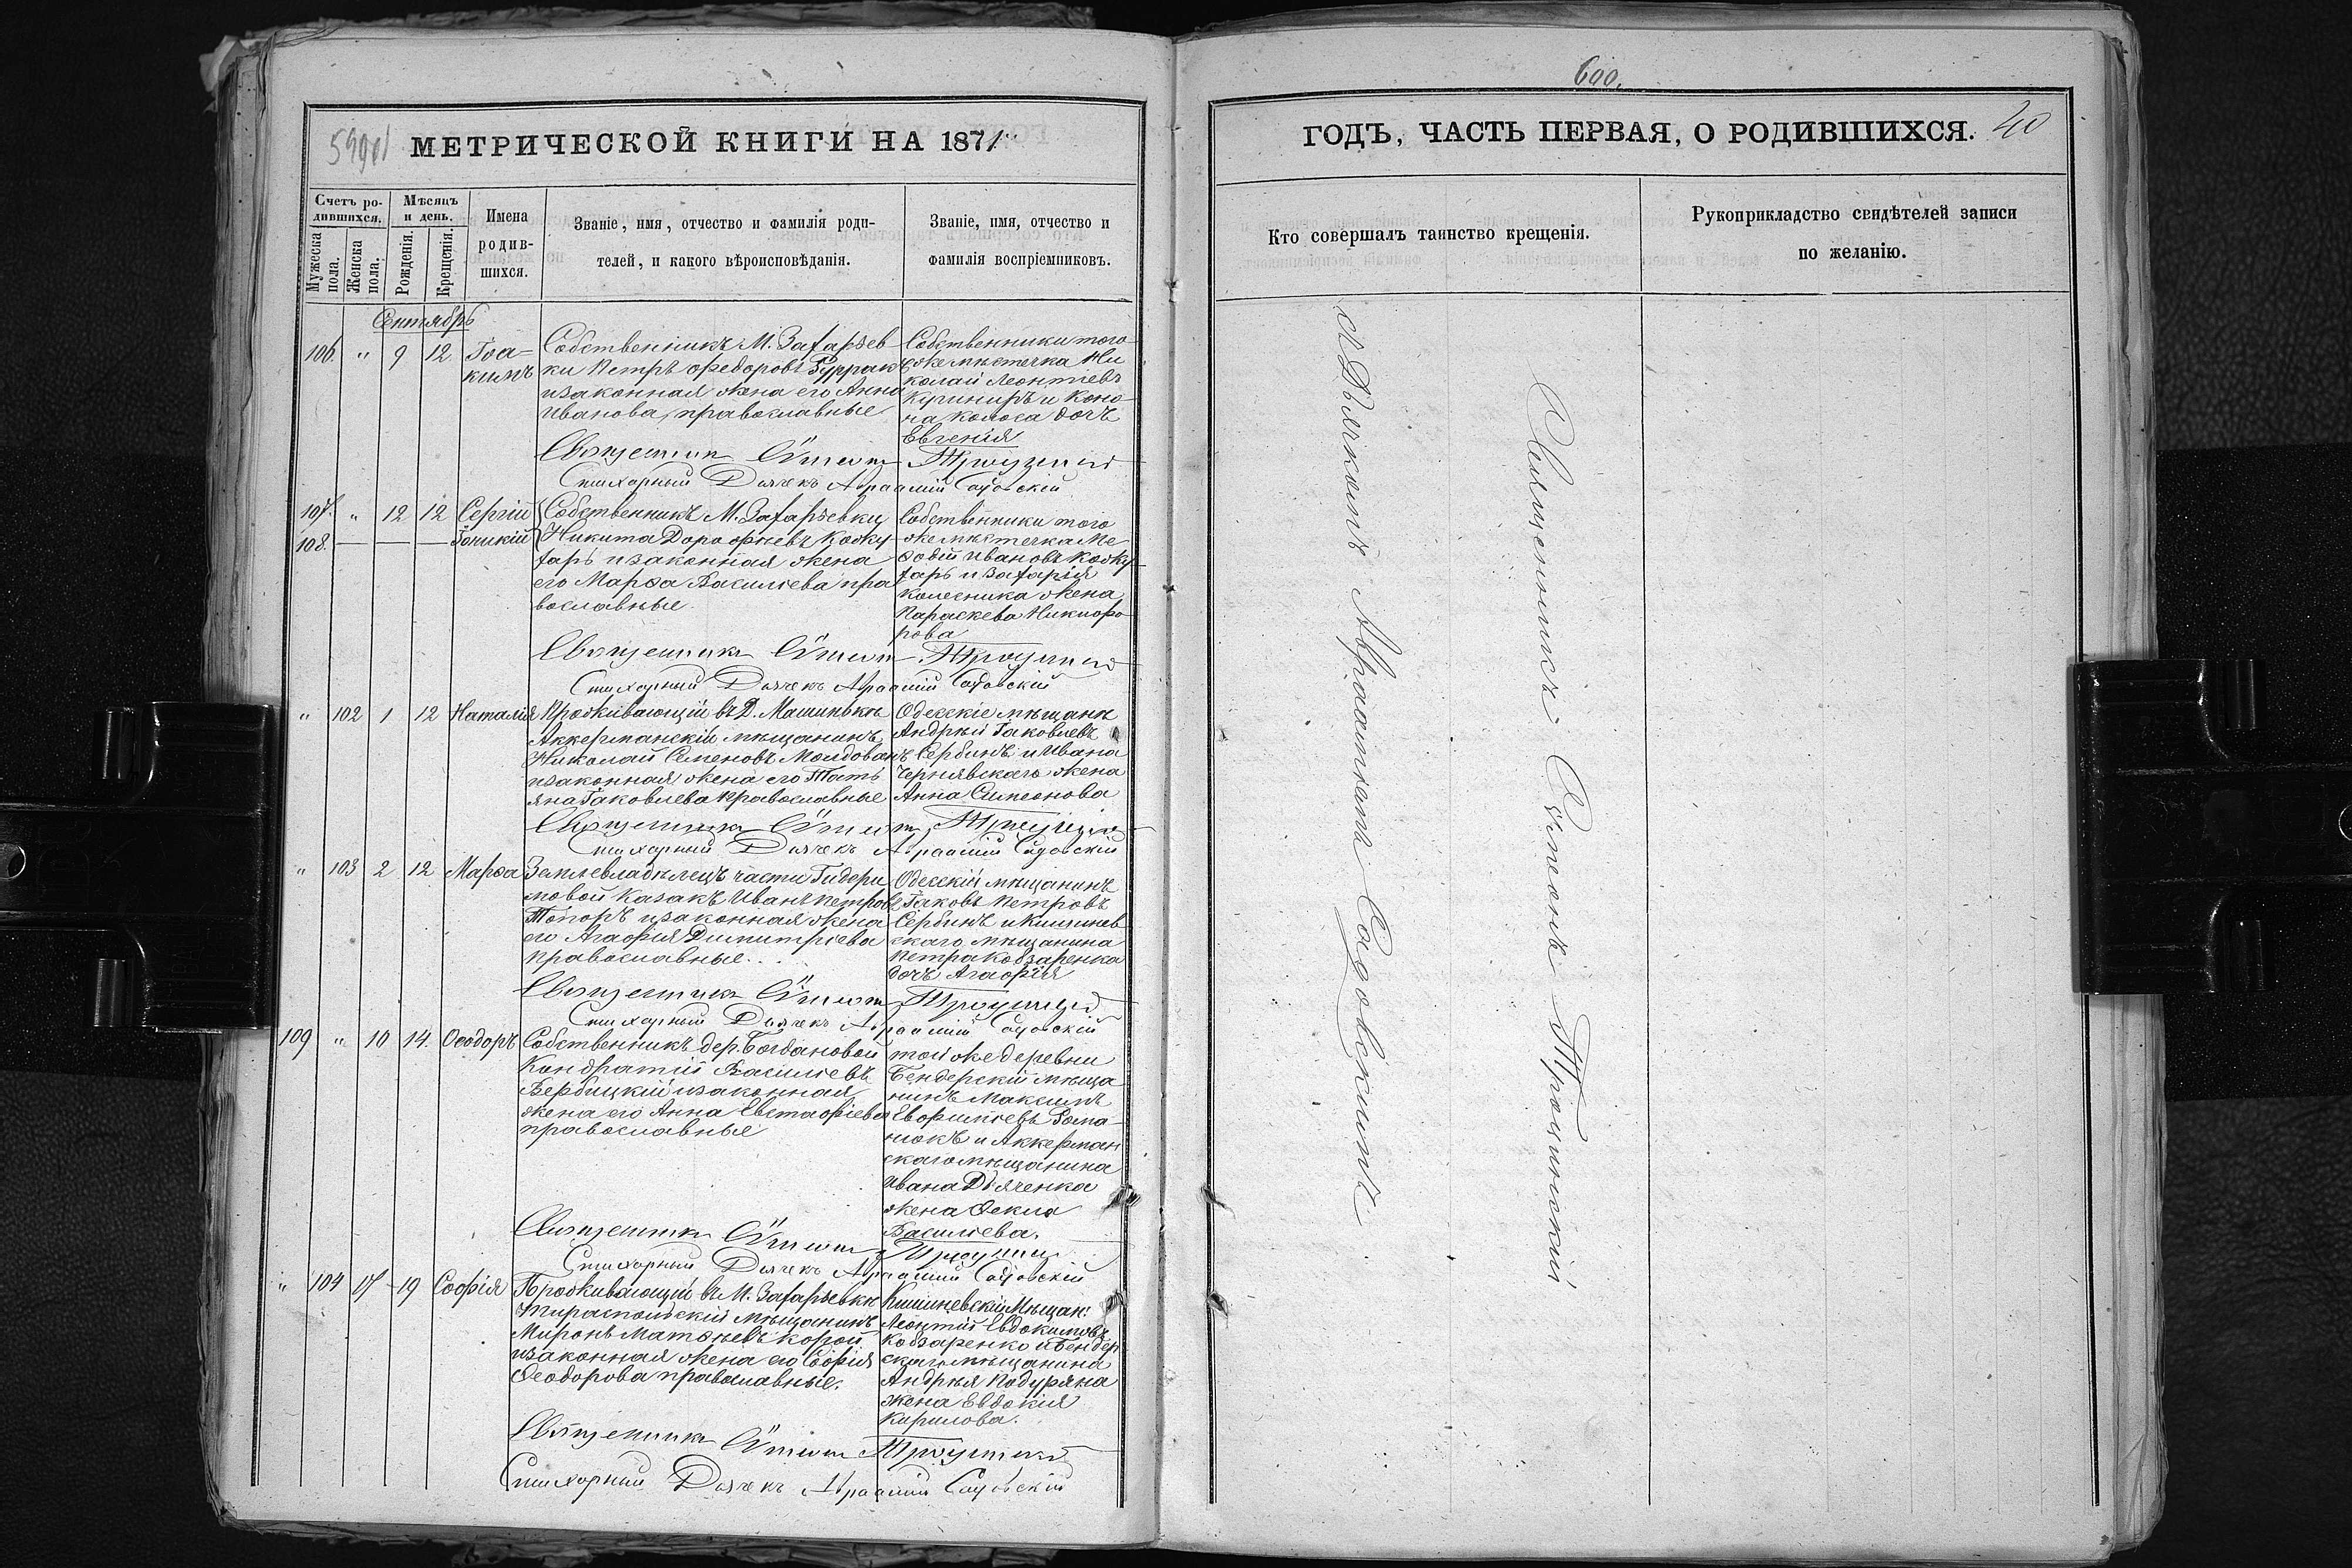 600.
МЕТРИЧЕСКОЙ КНИГИ НА 1871
ГОДЪ, ЧАСТЬ ПЕРВАЯ, О РОДИВШИХСЯ. 40
Счетъ родившихся.
Мужеска пола.
Женска пола.
Мѣсяцъ и день.
Рожденія.
Крещенія.
Имена
родив-
шихся.
Званіе, имя, отчество и фамилія роди-
телей, и какого вѣроисповѣданія.
Званіе, имя, отчество и
фамилія воспріемниковъ.
Кто совершалъ таинство крещенія.
Рукоприкладство свидѣтелей записи
по желанію.
Сентябрь
106. " 9 12 Іоа-
кимъ
Собственникъ М. Захарьев
ки Петръ Федоровъ
и законная жена его Анна
Иванова, православные
Собственники того
же мѣстечка Ни
колай Леонтіевъ
и Коно-
на Колоса дочь
Евгенія
Священник Симеон Троцинский
Стихарный Дьячекъ Авраамій Садовскій
107. " 12 12 Сергій
108. — — — Іоникій
Собственникъ М. Захарьевки
Никита Дорофѣевъ Кожу
харь и законная жена
его Марѳа Васильева пра
вославные.
Собственники того
же мѣстечка Ме
ѳодій Ивановъ Кожу-
харь и Захарія
Колесника жена
Параскева Никифо
рова
Священник Симеон Троцинский
Стихарный Дьячекъ Авраамій Садовскій
" 102 1 12 Наталія
Проживающій въ Д.
Аккерманскій мѣщанинъ
Николай Семеновъ Молдованъ
и законная жена его Тать
яна Іаковлева православные
Одесскіе мѣщане
Андрей Іаковлевъ
Сербинъ и Ивана
Чернявскаго жена
Анна Симеонова
Священник Симеон Троцинский
Стихарный Дьячекъ Авраамій Садовскій
" 103 2 12 Марѳа
Землевладѣлецъ части Гидери
мовой казакъ Иванъ Петровъ
Топоръ и законная жена
его Агафія Димитріева
православные...
Одесскій мѣщанинъ
Іаковъ Петровъ
Сербинъ и Кишинев
скаго мѣщанина
Петра Кобзаренка
дочь Агафія
Священник Симеон Троцинский
Стихарный Дьячекъ Авраамій Садовскій
109 " 10 14. Ѳеодоръ
Собственникъ дер. Богдановой
Кондратій Васильевъ
Вербицкій и законная
жена его Анна Евстафіева
православные
той же деревни
Бендерскій мѣща
нинъ Максимъ
Евфиміевъ Рома-
нюкъ и Аккерман
скаго мѣщанина
Ивана Дьяченка
жена Ѳекла
Васильева.
Священник Симеон Троцинский
Стихарный Дьячекъ Авраамій Садовскій
" 104 17 19 Софія
Проживающій въ М. Захарьевкѣ
Тираспольскій мѣщанинъ
Миронъ Матѳѣевъ Корой
и законная жена его Софія
Ѳеодорова православные.
Кишиневскій Мѣщан:
Леонтій Евдокимовъ
Кобзаренко и Бендер
скаго мѣщанина
Андрея Подуряна
жена Евдокія
Кирилова.
Священник Симеон Троцинский
Стихарный Дьячекъ Авраамій Садовскій
Священникъ Симеонъ Троцинскій
съ Дьячкомъ Авраамiемъ Садовскимъ